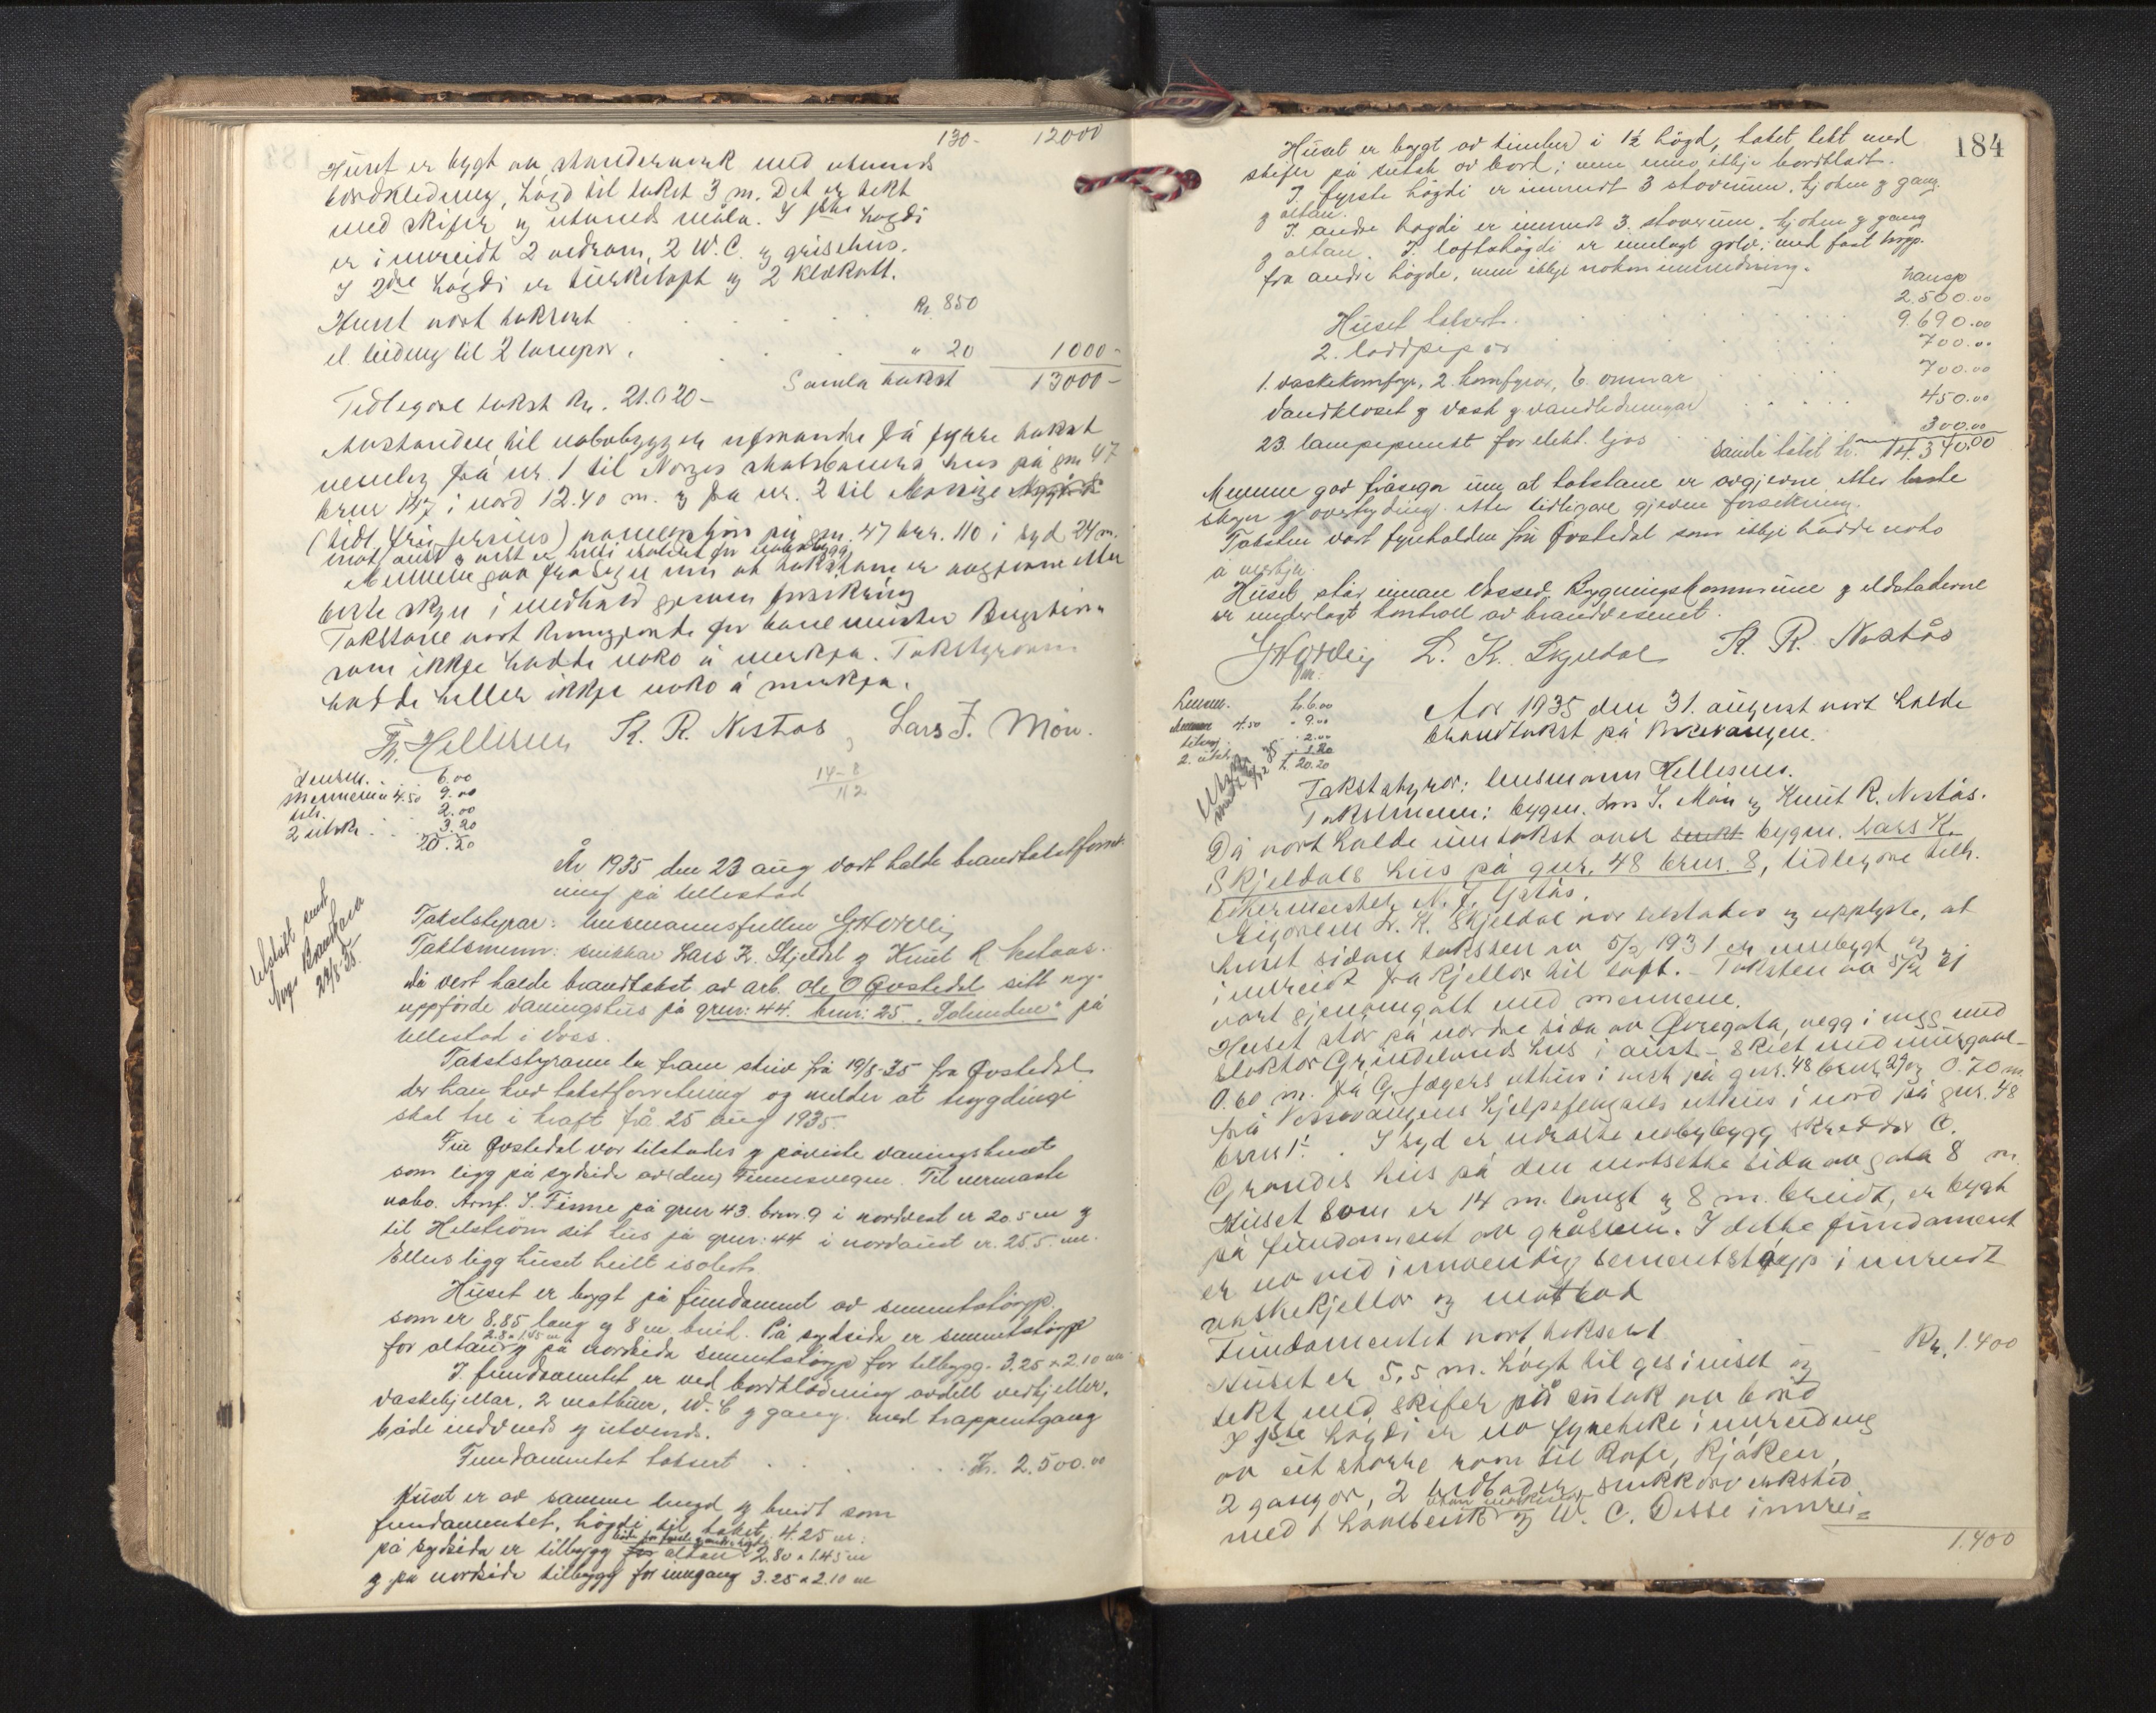 130- 12000
Huset er bygt av standerverk med utvendes
bordkledning, høgd til taket 3 m. Det er tekt
med skifer og utvendes måla. I 1ste høgdi
er innreidt 2 vedrom, 2 W.C. og grisehus.
I 2dre høgdi er turkeloft og 2 klækott.
Huset vart taksert . . . . . Kr. 850
el. leidning til 2 lampor. . . . " 20 1000-
Samla takst 13000-
Tidlegare takst Kr. 21.020-
Avstanden til nabobyggjer ufmandre på fyrre takst
nemleg frå nr. 1 til Norges skatsbanks hus på gnr 47
brnr 147 i nord 12.40 m. og fra nr. 2 til
(tidl. ) på gnr. 47 bnr. 110 i syd 24 m.
mot aust og vest er heilt isolert for nabobygg
Mennene gav frasegn um at takstane er avgjevne etter
beste skyn i medhald gjeven forsikring
Takstane vart kunngjorde for banemeister
som ikkje hadde noko å merkja. Takstyraren
hadde heller ikkje noko å merkja.
Hellesnes K. R. Nestås, Lars J. Møn.
Lensm. . . 6.00
Mennene 4.50 9.00
2.00
2 utskr. . . 3.20
20.20
14-8
112
År 1935 den 23 aug vart halde brandtakstforret-
ning på Ullestad
Utskrift sendt
Norges Brandkasse
22/8-35.
Takststyrar: lensmannsfullm G Hovlig
Takstmenn: snikkar Lars K. Skjeldal og Knut R Nestaas.
Då vert halde brandtakst av arb. Ole O Qvstedal sitt ny-
uppførde vaningshus på grnr: 44. brnr: 25 "Solunden" på
Ullestad i Voss.
Takststyraren la fram skriv frå 19/8-35 fra Qvstedal
der han krev takstforretning og melder at trygdingi
skal tre i kraft frå 25 aug 1935.
Fru Qvstedal var tilstades og påviste vaningshuset
som ligg på sydsida av (den) Finnesvegen. Til nermaste
nabo. Arnf. I. Finne på grnr 43. brnr. 9 i nordvest er 20.5 m og
til Helstrøm sit hus på grnr: 44 i nordaust er. 25.5. m.
Ellers ligg huset heilt isolert.
Huset er bygt på fundament av sementstøyp
som er 8.85 lang og 8 m breid. På sydsida er sementstøyp
for altan 2.8 x 1.45 m og på nordsida sementstøyp for tilbygg. 3.25 x 2.10 m
I fundamentet er ved bordklædning avdelt vedkjeller,
vaskekjellar, 2 matbuer, W.C og gang. med trappeutgang
både indvends og utvends.
Fundamentet taksert . . . . . . Kr. 2.500.00
Huset er av samme lengd og breidt som
fundamentet, høgdi til taket 4.25 m.
på sydsida er tilbygg for altan 2.80 x 1.45 m
og på nordsida tilbygg for inngang 3.25 x 2.10 m
184
Huset er bygt av timber i 1½ høgd, taket tekt med
skifer på sutak av bord; men enno ikkje bordkladt.
I. fyrste høgdi er innreidt 3 stoverum, kjøken og gang
og altan.
I. andre høgdi er innreidt 3. stoverum, kjøken og gang
og altan. I. loftshøgdi er innlagt golv; med fast trapp.
fra andre høgde, men ikkje nokon innreidning.
transp
2.500.00
Huset taksert. . . . . . 9.690.00
2. loddpipor . . . . . 700.00
1. vaskekomfyr, 2. komfyrar, 6 omnar . . . 700.00
Vandkloset og vask og vandledningar . . . 450.00
23. lampepunkt for elekt. ljos . . . 300.00
Samla takst kr. 14.340.00
Mennene gav fråsegn um at takstane er avgjevne etter beste
skyn og overtyding etter tidlegare gjeven forsikring.
Taksten vart fyrehalden fru Qvstedal som ikkje hadde noko
å merkja.
Huset står innan Vossed Bygningskommune og eldstaderne
er underlagt kontroll av brandvesenet.
G Hovlig L. K. Skjeldal K. R. Nestås
Lensm. kr. 6.00
4.50 " 9.00
" 2.00
2. utskr. " 3.20
kr. 20.20
Aar 1935 den 31. august vart halde
brandtakst på Vossevangen.
Takststyrar: lensmann Hellesnes.
Takstmenn: bygm. Lars J. Møn og Knut R. Nestås.
Då vart halde umtakst over bygm. Lars K.
Skjeldals hus på gnr. 48 brnr. 8, tidlegare tilh.
N. J. Gjstås.
Eigaren L. K. Skjeldal var tilstades og upplyste, at
huset sidan taksten av 5/2 1931 er umbygt og
innreidt fra kjellar til loft. - Taksten av 5/2 31
vart gjennomgått med mennene.
Huset står på nordre sida av Øvregata, vegg i vegg med
doktor Grundelands hus i aust - skilt med murgavl -
0.60 m. frå G. Jægers uthus i vest på gnr. 48 brnr. 29 og 0.70 m
frå Vossevangens hjelpefengsels uthus i nord på gnr. 48
brnr 1. I syd er nedraste nabobygg skreddar O.
Grondes hus på den motsette sida av gata 8 m.
Huset som er 14 m. langt og 8 m. breidt, er bygt
på fundament av gråstein. I dette fundament
er no ved innvendig sementstøyp innreidt
vaskekjellar og matbod
Fundamentet vart taksert Kr. 1.400
Huset er 5,5 m. høgt til gesimset og
tekt med skifer på sutak av bord
I 1ste høgdi er no fyreteke innreidning
av eit større rom til Kafe, kjøken,
2 gangar, 2 vedboder, snikkarverkstad
med 1 høvelbenk utan maskinar og W. C. Desse innrei-
1.400